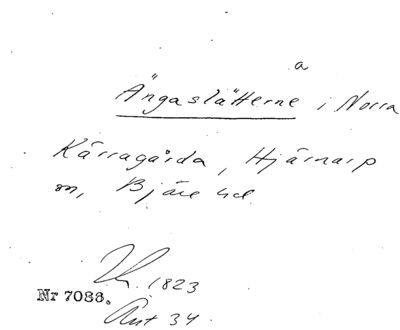 a
Ängaslätterne i Norra
Kärragårda, Hjärnarp
sn, Bjäre hd
1823
Nr 7088.
Akt 34